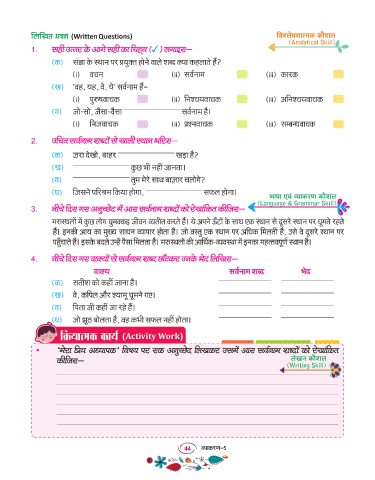 लिखित प्रश्न (Written Questions)
विश्लेषणात्मक कौशल
(Analytical Skill)
1. सही उत्तर के आगे सही का चिह्न (✓) लगाइए—
(क) संज्ञा के स्थान पर प्रयुक्त होने वाले शब्द क्या कहलाते हैं?
(i) वचन (ii) सर्वनाम (iii) कारक
(ख) 'वह, यह, वे, ये' सर्वनाम हैं—
(i) पुरुषवाचक (ii) निश्चयवाचक (iii) अनिश्चयवाचक
(ग) जो-सो, जैसा-वैसा सर्वनाम हैं।
(i) निजवाचक (ii) प्रश्नवाचक (iii) सम्बन्धवाचक
2. उचित सर्वनाम शब्दों से खाली स्थान भरिए—
(क) ज़रा देखो, बाहर खड़ा है?
(ख) कुछ भी नहीं जानता।
(ग) तुम मेरे साथ बाज़ार चलोगे?
(घ) जिसने परिश्रम किया होगा, सफल होगा।
भाषा एवं व्याकरण कौशल
(Language & Grammar Skill)
3. नीचे दिए गए अनुच्छेद में आए सर्वनाम शब्दों को रेखांकित कीजिए—
मरुस्थलों में कुछ लोग घुमक्कड़ जीवन व्यतीत करते हैं। ये अपने ऊँटों के साथ एक स्थान से दूसरे स्थान पर घूमते रहते
हैं। इनकी आय का मुख्य साधन व्यापार होता है। जो वस्तु एक स्थान पर अधिक मिलती है, उसे वे दूसरे स्थान पर
पहुँचाते हैं। इसके बदले उन्हें पैसा मिलता है। मरुस्थलों की आर्थिक-व्यवस्था में इनका महत्त्वपूर्ण स्थान है।
4. नीचे दिए गए वाक्यों से सर्वनाम शब्द छाँटकर उनके भेद लिखिए—
वाक्य सर्वनाम शब्द भेद
(क) सतीश को कहीं जाना है।
(ख) वे, कपिल और श्यामू घूमने गए।
(ग) पिता जी कहीं जा रहे हैं।
(घ) जो झूठ बोलता है, वह कभी सफल नहीं होता।
क्रियात्मक कार्य (Activity Work)
• 'मेरा प्रिय अध्यापक' विषय पर एक अनुच्छेद लिखकर उसमें आए सर्वनाम शब्दों को रेखांकित
कीजिए—
लेखन कौशल
(Writing Skill)
44 व्याकरण-5